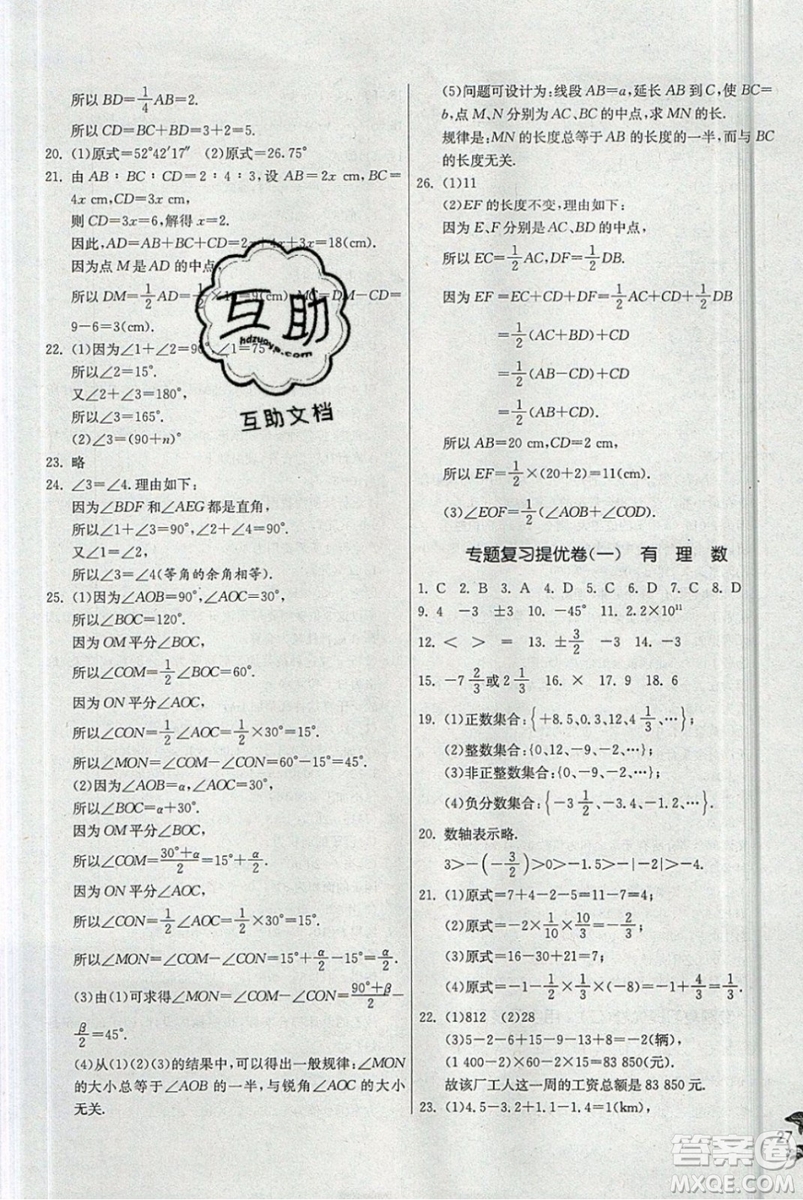 所以 BD=1/4 AB=2.
所以 CD=BC+BD=3+2=5.
20. (1)原式=52°42′17″ (2)原式=26.75°
21. 由 AB∶BC∶CD=2∶4∶3,设 AB=2x cm,BC=
4x cm,CD=3x cm,
则 CD=3x=6,解得 x=2.
因此,AD=AB+BC+CD=2x+4x+3x=18(cm).
因为点 M 是 AD 的中点,
所以 DM=1/2 AD=1/2×18=9(cm),MC=DM-CD=
9-6=3(cm).
22. (1)因为∠1+∠2=90°,∠1=75°
所以∠2=15°.
又∠2+∠3=180°,
所以∠3=165°.
(2)∠3=(90+n)°
23. 略
24. ∠3=∠4.理由如下:
因为∠BDF和∠AEG都是直角,
所以∠1+∠3=90°,∠2+∠4=90°.
又∠1=∠2,
所以∠3=∠4(等角的余角相等).
25. (1)因为∠AOB=90°,∠AOC=30°,
所以∠BOC=120°.
因为 OM 平分∠BOC,
所以∠COM=1/2∠BOC=60°.
因为 ON 平分∠AOC,
所以∠CON=1/2∠AOC=1/2×30°=15°.
所以∠MON=∠COM-∠CON=60°-15°=45°.
(2)因为∠AOB=α,∠AOC=30°,
所以∠BOC=α+30°.
因为 OM 平分∠BOC,
所以∠COM=(30°+α)/2=15°+α/2.
因为 ON 平分∠AOC,
所以∠CON=1/2∠AOC=1/2×30°=15°.
所以∠MON=∠COM-∠CON=15°+α/2-15°=α/2.
(3)由(1)可求得∠MON=∠COM-∠CON=(90°+β)/2-
β/2=45°.
(4)从(1)(2)(3)的结果中,可以得出一般规律:∠MON
的大小总等于∠AOB的一半,与锐角∠AOC的大小
无关.
(5)问题可设计为:线段 AB=a,延长 AB 到 C,使 BC=
b,点 M、N 分别为 AC、BC 的中点,求 MN 的长.
规律是:MN 的长度总等于 AB 的长度的一半,而与 BC
的长度无关.
26. (1)11
(2)EF 的长度不变,理由如下:
因为 E、F 分别是 AC、BD 的中点,
所以 EC=1/2 AC,DF=1/2 DB.
因为 EF=EC+CD+DF=1/2 AC+1/2 DB+CD
=1/2(AC+BD)+CD
=1/2(AB-CD)+CD
=1/2(AB+CD).
所以 AB=20 cm,CD=2 cm,
所以 EF=1/2×(20+2)=11(cm).
(3)∠EOF=1/2(∠AOB+∠COD).
专题复习提优卷(一) 有 理 数
1. C 2. B 3. A 4. C 5. D 6. C 7. C 8. D
9. 4 -3 ±3 10. -45° 11. 2.2×10¹¹
12. < > = 13. ±3/2 -3 14. -3
15. -7 2/3或2 1/3 16. × 17. 9 18. 6
19. (1)正数集合:{+8.5,0.3,12,4 1/3,…};
(2)整数集合:{0,12,-9,-2,…};
(3)非正整数集合:{0,-9,-2,…};
(4)负分数集合:{-3 1/2,-3.4,-1.2,…}.
20. 数轴表示略.
3>-(-3/2)>0>-1.5>-|-2|>-4.
21. (1)原式=7+4-2-5=11-7=4;
(2)原式=-2×1/10×10/3=-2/3;
(3)原式=16-30+21=7;
(4)原式=-1-1/2×1/3×(-8)=-1+4/3=1/3.
22. (1)812 (2)28
(3)5-2-5+15-9-13+8=-2(辆),
(1 400-2)×60-2×15=83 850(元).
故该厂工人这一周的工资总额是 83 850 元.
23. (1)4.5-3.2+1.1-1.4=1(km),
27
互助
hdzuoye.com
互助文档
答案圈
MXQE.COM